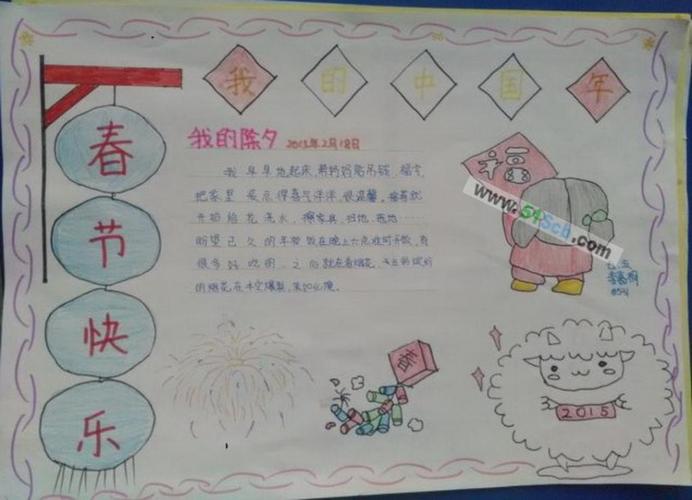 我的中国年
春节快乐
我的除夕 2015年2月18日
我早早地起床,帮妈妈贴吊钱、福字,
把家里装点得喜气洋洋,很温馨。接着就
开始给花浇水、擦家具、扫地、拖地
盼望已久的年夜饭在晚上六点准时开饭,有
很多好吃的。之后就在看烟花,
的烟花在半空爆裂,美如幻境。
福
www.54Sch.com
春
2015